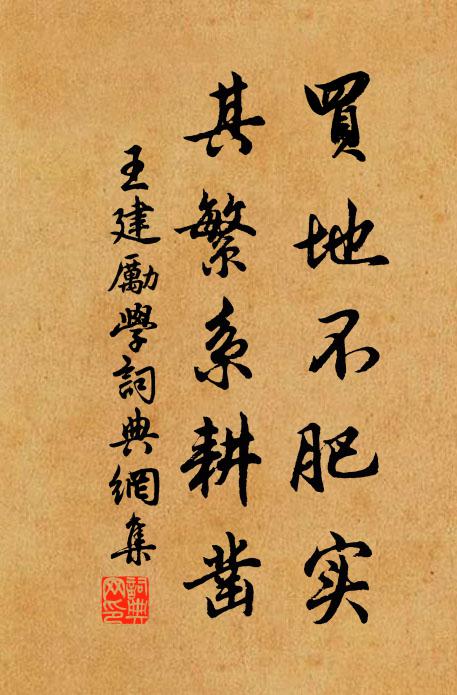 買地不肥实
其繁系耕凿
王建勵學詞典網集
詞典网印